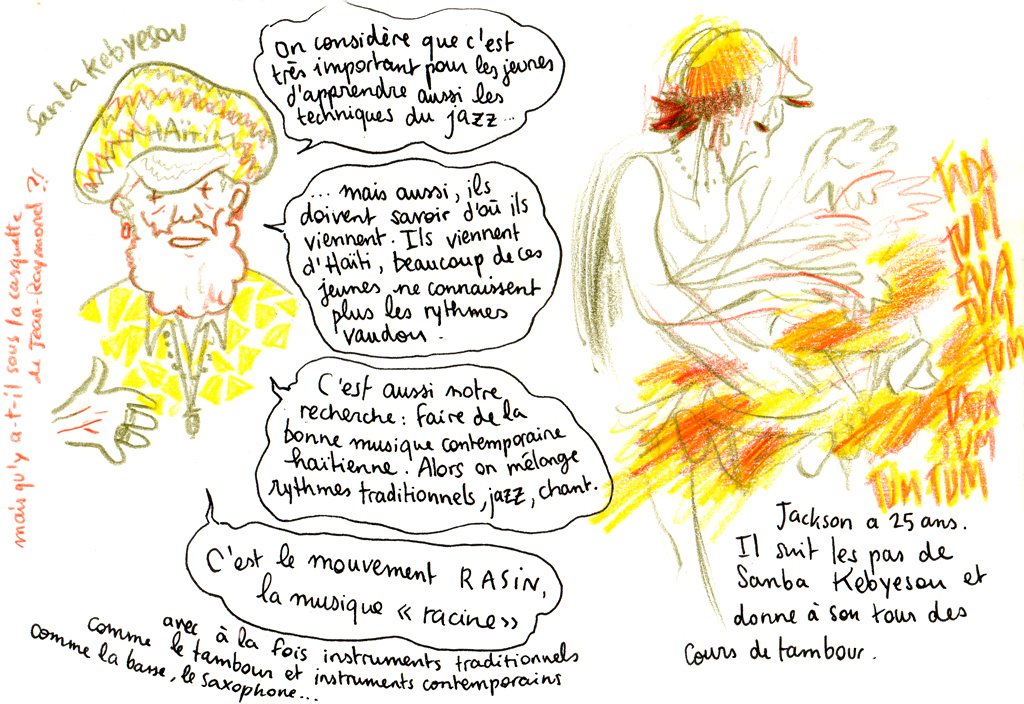 Sanba Kebyesou
HAïTI
mais qu'y a-t-il sous la casquette
de Jean-Raymond ?!
On considère que c'est
très important pour les jeunes
d'apprendre aussi les
techniques du jazz...
... mais aussi, ils
doivent savoir d'où ils
viennent. Ils viennent
d'Haïti, beaucoup de ces
jeunes ne connaissent
plus les rythmes
vaudou.
C'est aussi notre
recherche : faire de la
bonne musique contemporaine
haïtienne. Alors on mélange
rythmes traditionnels, jazz, chant.
C'est le mouvement RASIN,
la musique « racine »
avec à la fois instruments traditionnels
comme le tambour et instruments contemporains
comme la basse, le saxophone...
TADA
TUM
TADA
TUM
TUM
TADA
TUM
TUM TUM
Jackson a 25 ans.
Il suit les pas de
Sanba Kebyesou et
donne à son tour des
cours de tambour.